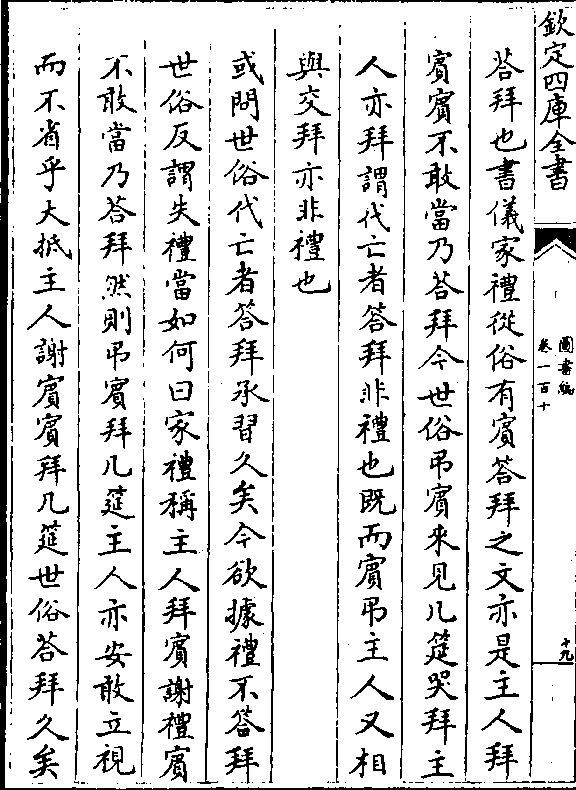 欽定四庫全書
圖書編
卷一百十
十九
荅拜也書儀家禮從俗有賓荅拜之文亦是主人拜
賓賓不敢當乃荅拜今世俗弔賓來見几筵哭拜主
人亦拜謂代亡者答拜非禮也既而賓弔主人又相
與交拜亦非禮也
或問世俗代亡者答拜承習久矣今欲據禮不答拜
世俗反謂失禮當如何曰家禮稱主人拜賓謝禮賓
不敢當乃荅拜然則弔賓拜几筵主人亦安敢立視
而不省乎大抵主人謝賓賓拜几筵世俗荅拜久矣